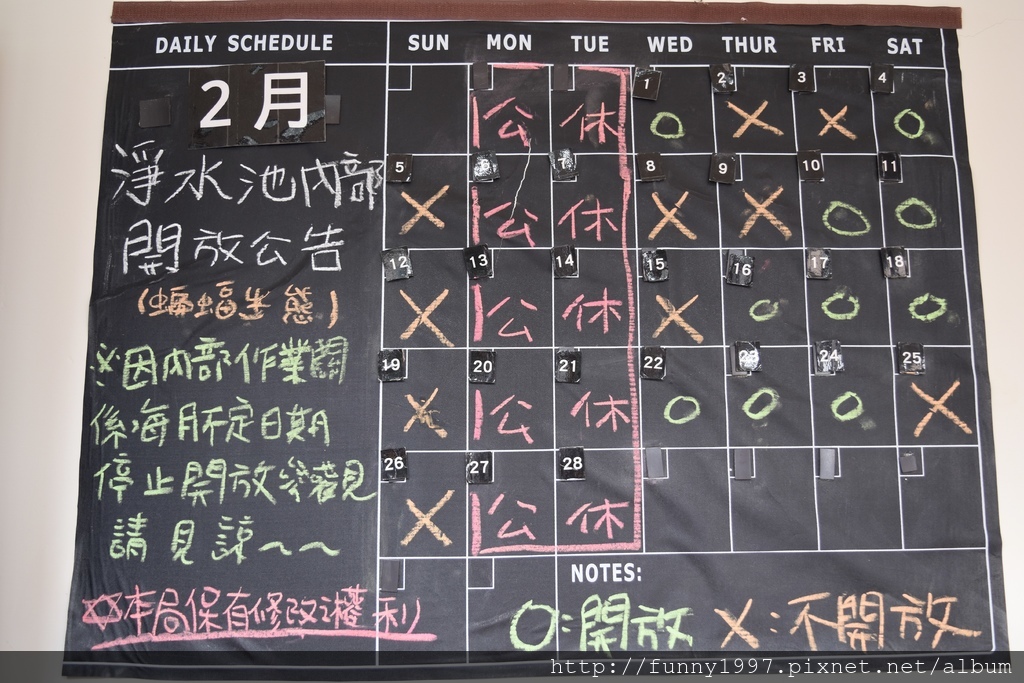 DAILY SCHEDULE SUN MON TUE WED THUR FRI SAT
2月
淨水池內部
開放公告
(蝙蝠生態)
※因內部作業關
係每月不定日期
停止開放參觀見
請見諒~~
✡本局保有修改之權利
公 休 1 O 2 X 3 X 4 O
5 X 6 公 7 休 8 X 9 X 10 O 11 O
12 X 13 公 14 休 15 X 16 O 17 O 18 O
19 X 20 公 21 休 22 O 23 O 24 O 25 X
26 X 27 公 28 休
NOTES:
O:開放 X:不開放
http://funny1997.pixnet.net/album